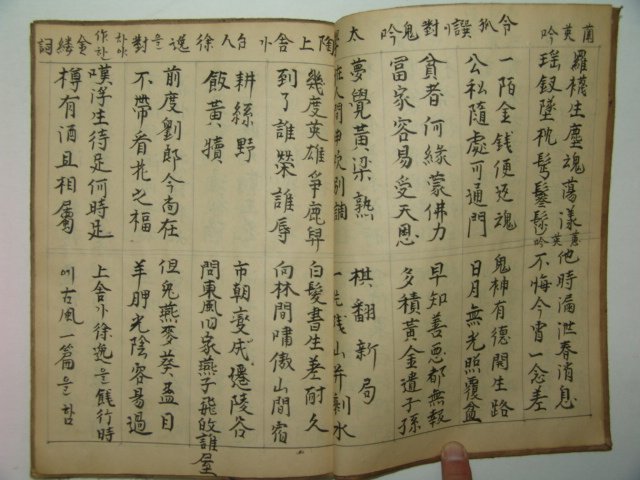 蘭英吟
羅襪生塵魂蕩漾
瑤釵墜枕鬢鬖
蕙英吟
他時漏洩春消息
不悔今宵一念差
令狐譔이對鬼吟
一陌金錢便返魂
公私隨處可通門
鬼神有德開生路
日月無光照覆盆
貧者何緣蒙佛力
富家容易受天恩
早知善惡都無報
多積黃金遺子孫
太
夢覺黃粱熟
在人間曲吹別調
棋翻新局
一先殘山幷剩水
陶上舍가白人徐逸을對하야作한金縷詞
幾度英雄爭鹿
到了誰榮誰辱
白髮書生差耐久
向林間嘯傲山間宿
耕綠野
飯黃犢
市朝變成遷陵谷
問東風旧家燕子飛啟誰屋
前度劉郎今尚在
不帶看花之福
但兔燕麥葵盈目
羊胛光陰容易過
嘆浮生待足何時足
樽有酒且相屬
上舍가徐逸을餞行時
에古風一篇을함